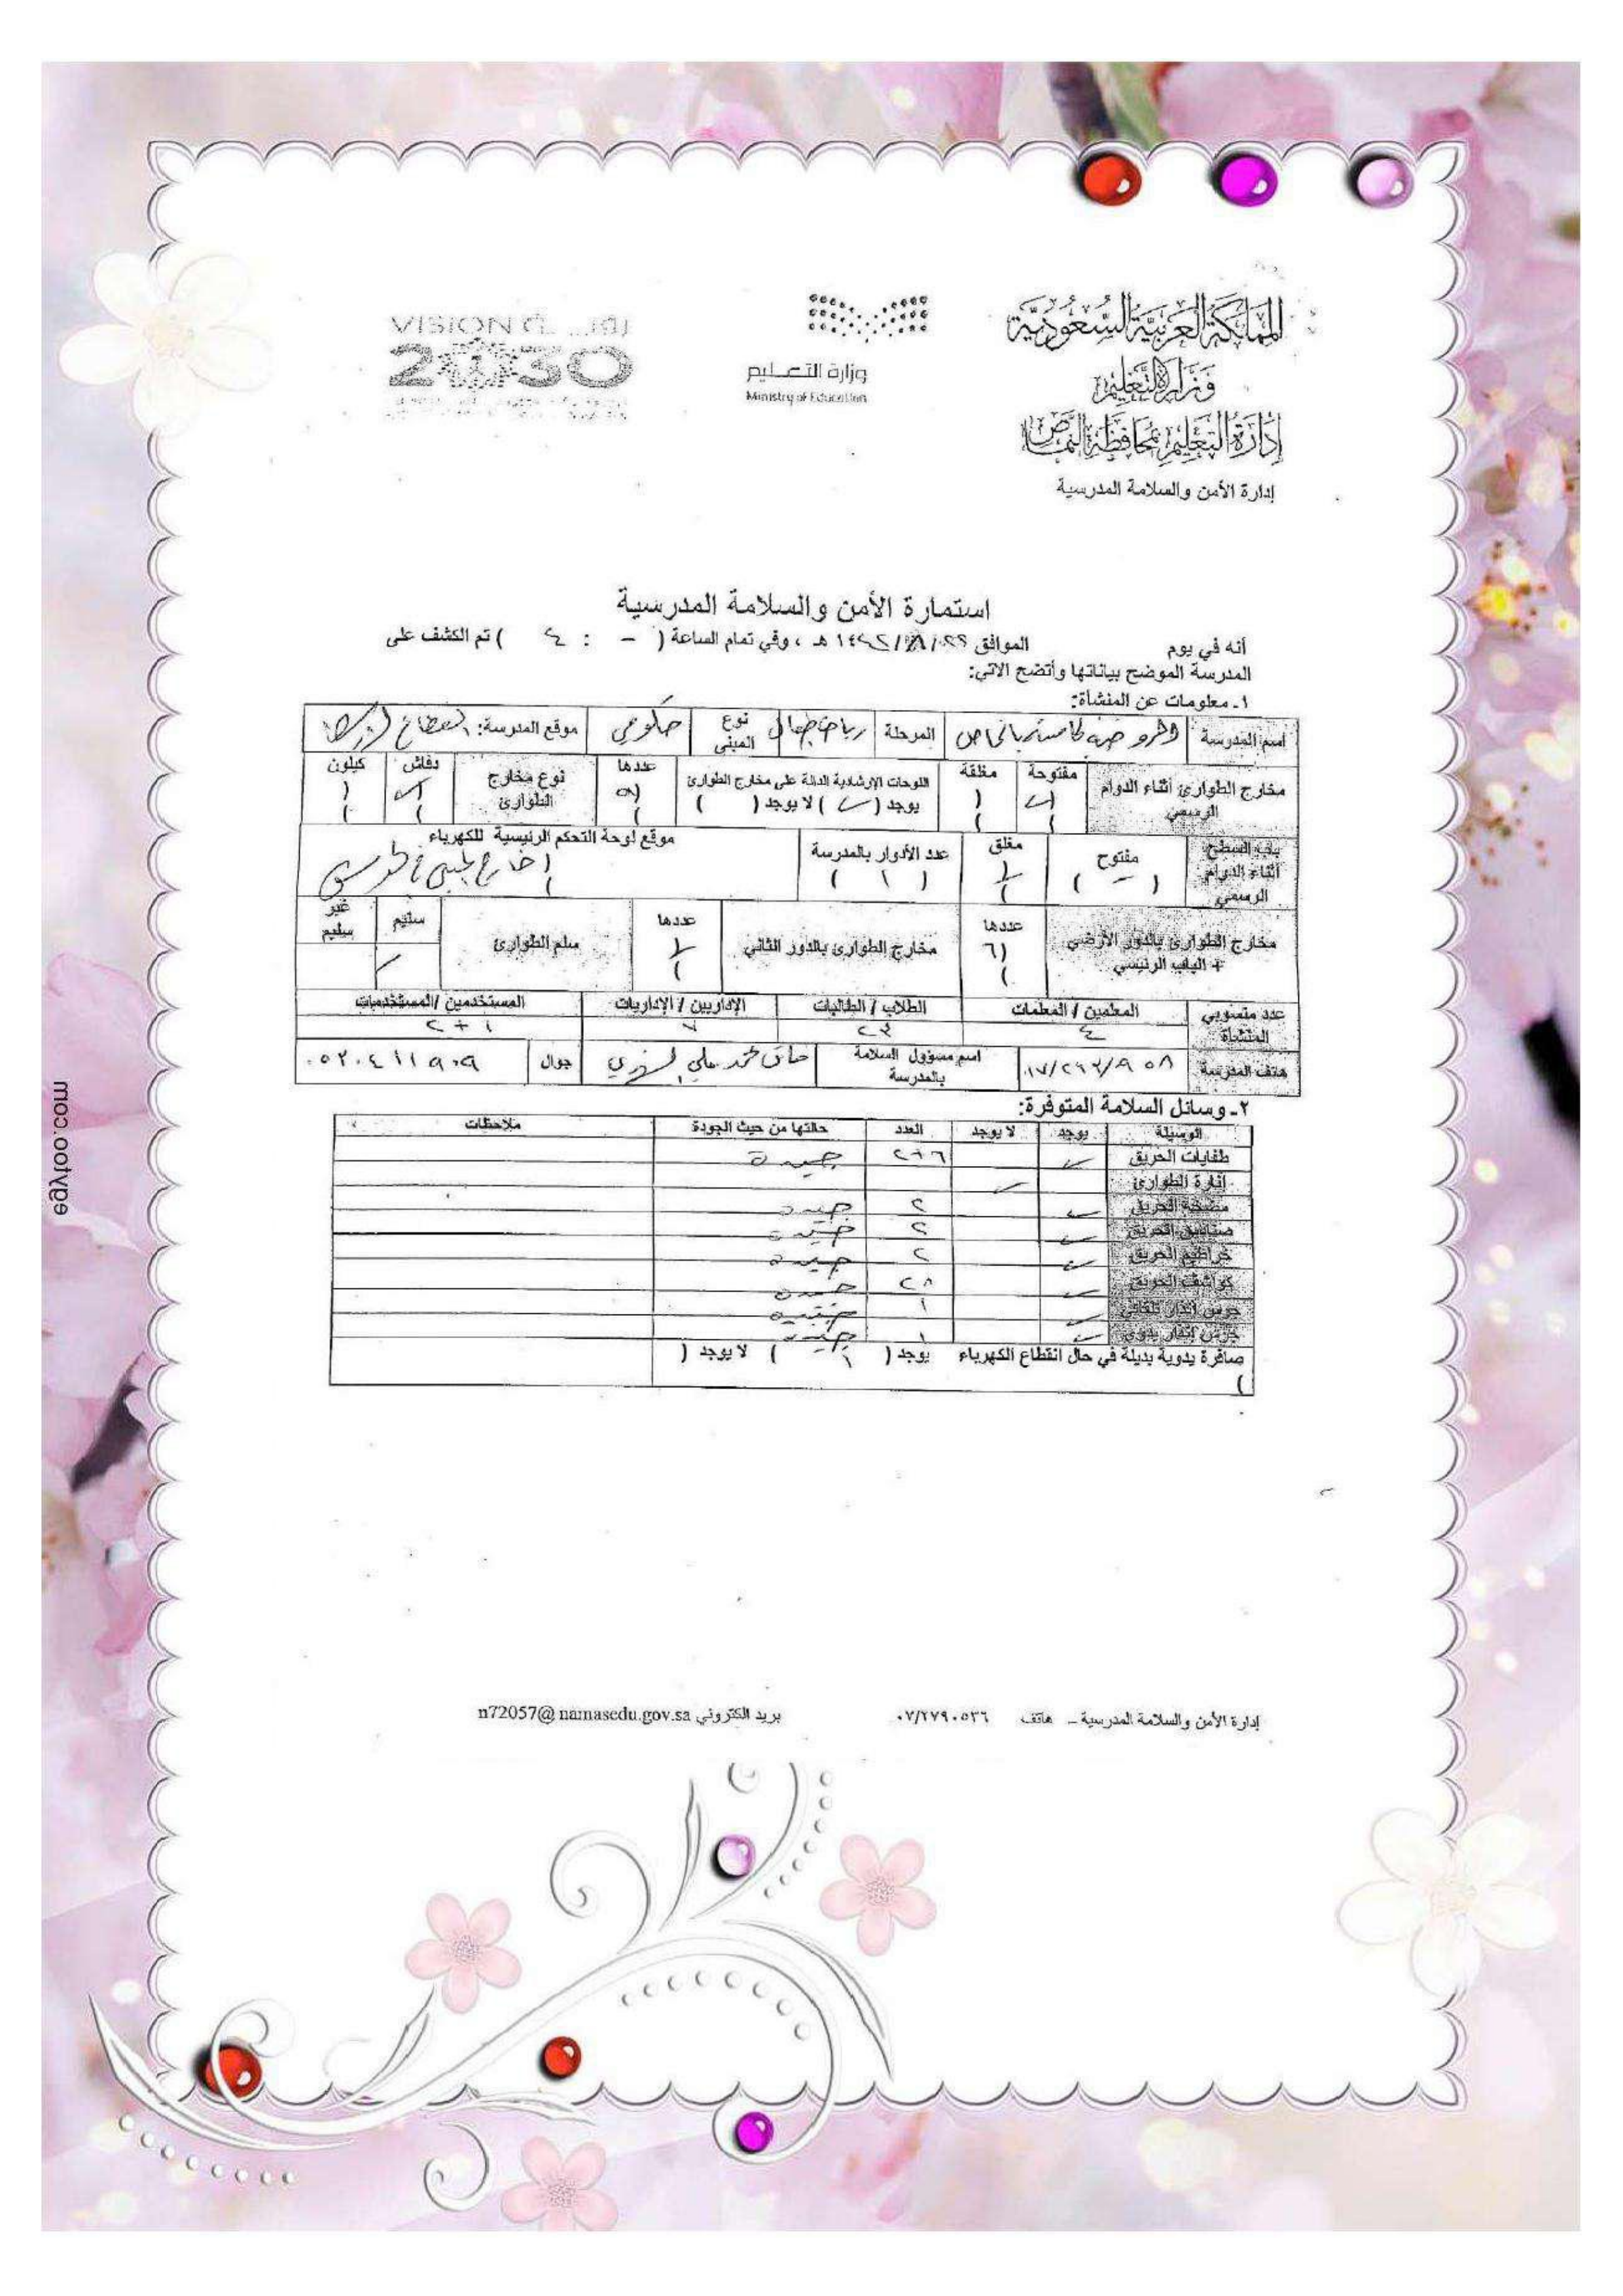 المملكة العربية السعودية
وزارة التعليم
إدارة التعليم بمحافظة النماص
إدارة الأمن والسلامة المدرسية
وزارة التعليم
Ministry of Education
VISION رؤية
2030
استمارة الأمن والسلامة المدرسية
أنه في يوم الموافق هـ ، وفي تمام الساعة ( - : ٤ ) تم الكشف على
المدرسة الموضح بياناتها وأتضح الاتي:
١- معلومات عن المنشأة:
اسم المدرسة المرحلة رياض أطفال نوع المبنى حكومي موقع المدرسة:
مخارج الطوارئ أثناء الدوام الرسمي مفتوحة ( ) مغلقة ( ) اللوحات الإرشادية الدالة على مخارج الطوارئ يوجد ( ✓ ) لا يوجد ( ) عددها نوع مخارج الطوارئ دفاش ( ) كيلون ( )
باب السطح أثناء الدوام الرسمي مفتوح ( ) مغلق عدد الأدوار بالمدرسة ( ١ ) موقع لوحة التحكم الرئيسية للكهرباء
مخارج الطوارئ بالدور الأرضي + الباب الرئيسي عددها (٦) مخارج الطوارئ بالدور الثاني عددها سلم الطوارئ سليم غير سليم
عدد منسوبي المنشأة المعلمين / المعلمات الطلاب / الطالبات الإداريين / الإداريات المستخدمين / المستخدمات
٤ ٢٣ ٧ ١+٢
هاتف المدرسة اسم مسؤول السلامة بالمدرسة جوال ٠٥٣٠٤١١٩٠٩
٢- وسائل السلامة المتوفرة:
الوسيلة يوجد لا يوجد العدد حالتها من حيث الجودة ملاحظات
طفايات الحريق ✓ ٦+٢ جيدة
إنارة الطوارئ ✓
مضخة الحريق ✓ ٢ جيدة
صناديق الحريق ✓ ٢ جيدة
خراطيم الحريق ✓ ٢ جيدة
كواشف الحريق ✓ ٢٨ جيدة
جرس إنذار تلقائي ✓ ١ جيدة
جرس إنذار يدوي ✓ ١ جيدة
صافرة يدوية بديلة في حال انقطاع الكهرباء يوجد ( ١ ) لا يوجد ( )
إدارة الأمن والسلامة المدرسية - هاتف ٠٧/٢٧٩٠٥٣٦ بريد الكتروني n72057@namasedu.gov.sa
egytoo.com